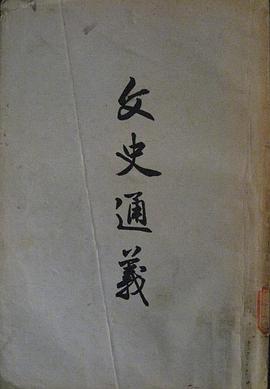 文史通義